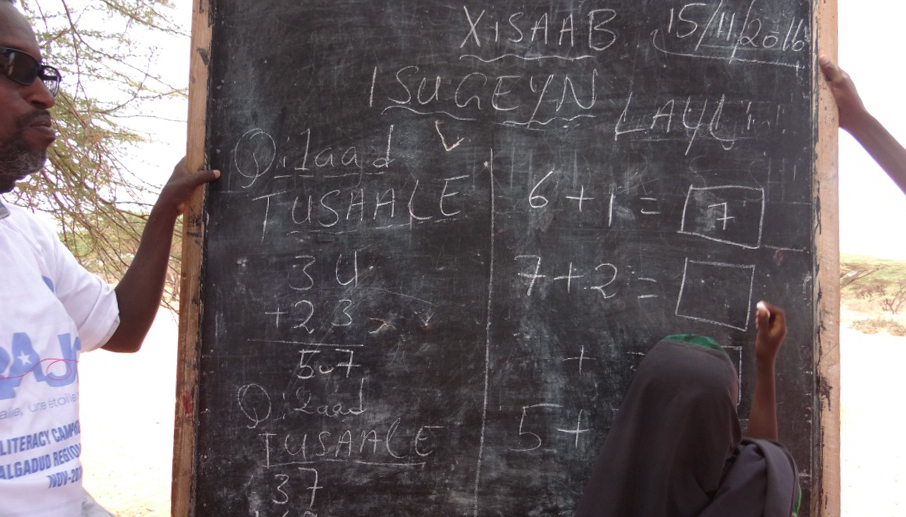 XISAAB 15/11/2016
ISUGEYN
LAYLI
Q. 1aad
TUSAALE
34
+23
57
Q. 2aad
TUSAALE
37
6+1= 7
7+2=
+ =
5+
LITERACY
NOV-20